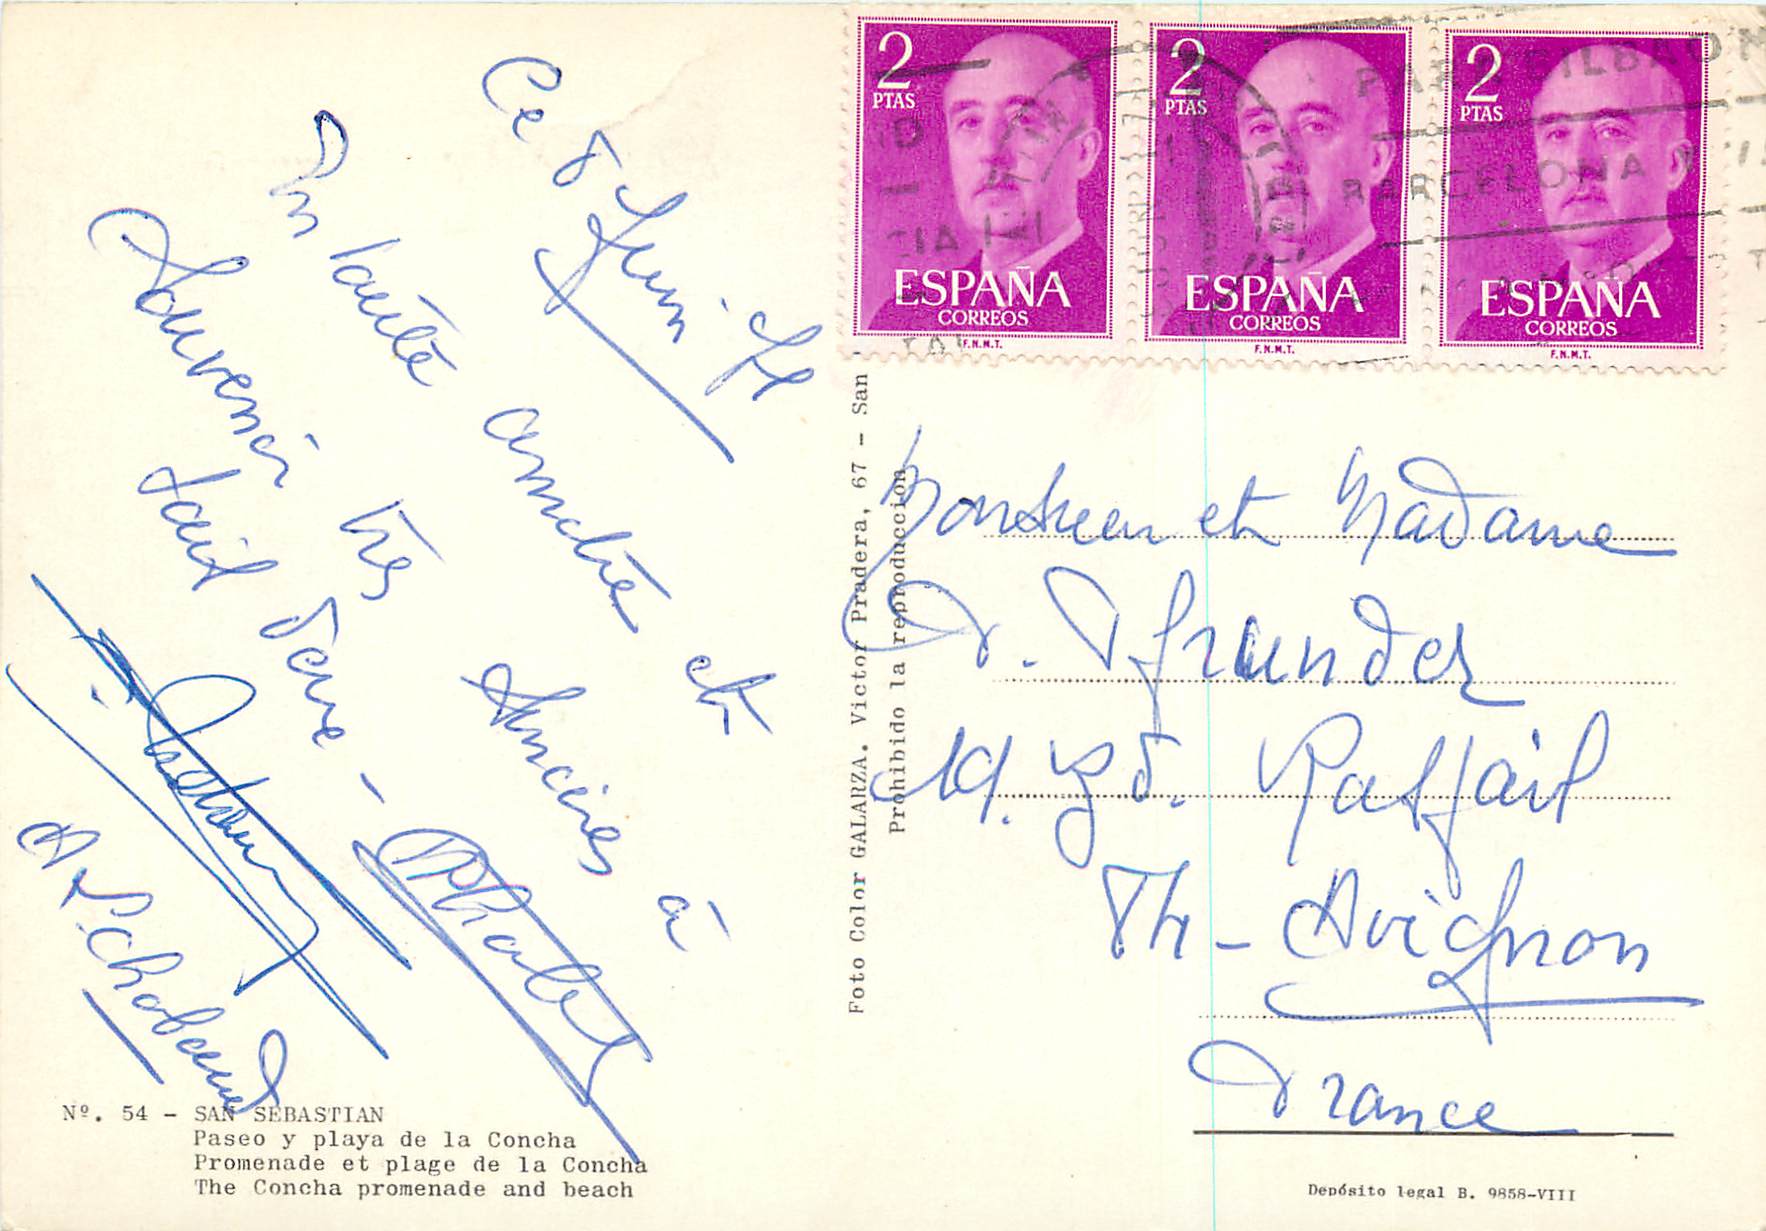 Ce 8 Juin
En toute amitié et
Souvenir très sincères à
tout deux -
2 PTAS
ESPAÑA
CORREOS
F.N.M.T.
2 PTAS
ESPAÑA
CORREOS
F.N.M.T.
2 PTAS
ESPAÑA
CORREOS
F.N.M.T.
BILBAO
BARCELONA
Foto Color GALARZA. Victor Pradera, 67 - San
Prohibido la reproducción
Monsieur et Madame
19. Bd. Raspail
Th - Avignon
France
Nº. 54 - SAN SEBASTIAN
Paseo y playa de la Concha
Promenade et plage de la Concha
The Concha promenade and beach
Depósito legal B. 9858-VIII